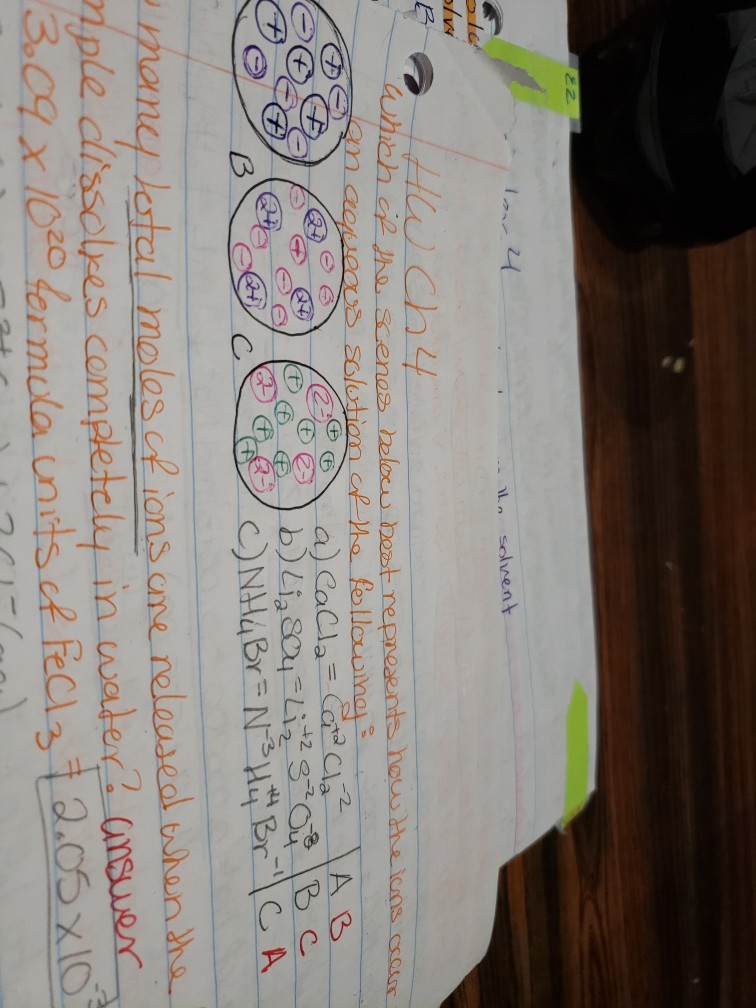 the solvent
HW Ch 4
which of the scenes below best represents how the ions occur
in aqueous solution of the following:
a) CaCl₂ = Ca⁺² Cl₂⁻² | A B
b) Li₂SO₄ = Li₂⁺² S⁻² O₄⁻⁸ | B C
c) NH₄Br = N⁻³ H₄⁺⁴ Br⁻¹ | C A
+ - + - + - + - + -
B
2+ - 2+ - 2+ - 2+ -
C
2- + 2- + 2- + 2- +
many total moles of ions are released when the
mple dissolves completely in water? answer
3.09 x 10²⁰ formula units of FeCl₃ = 2.05 x 10⁻³